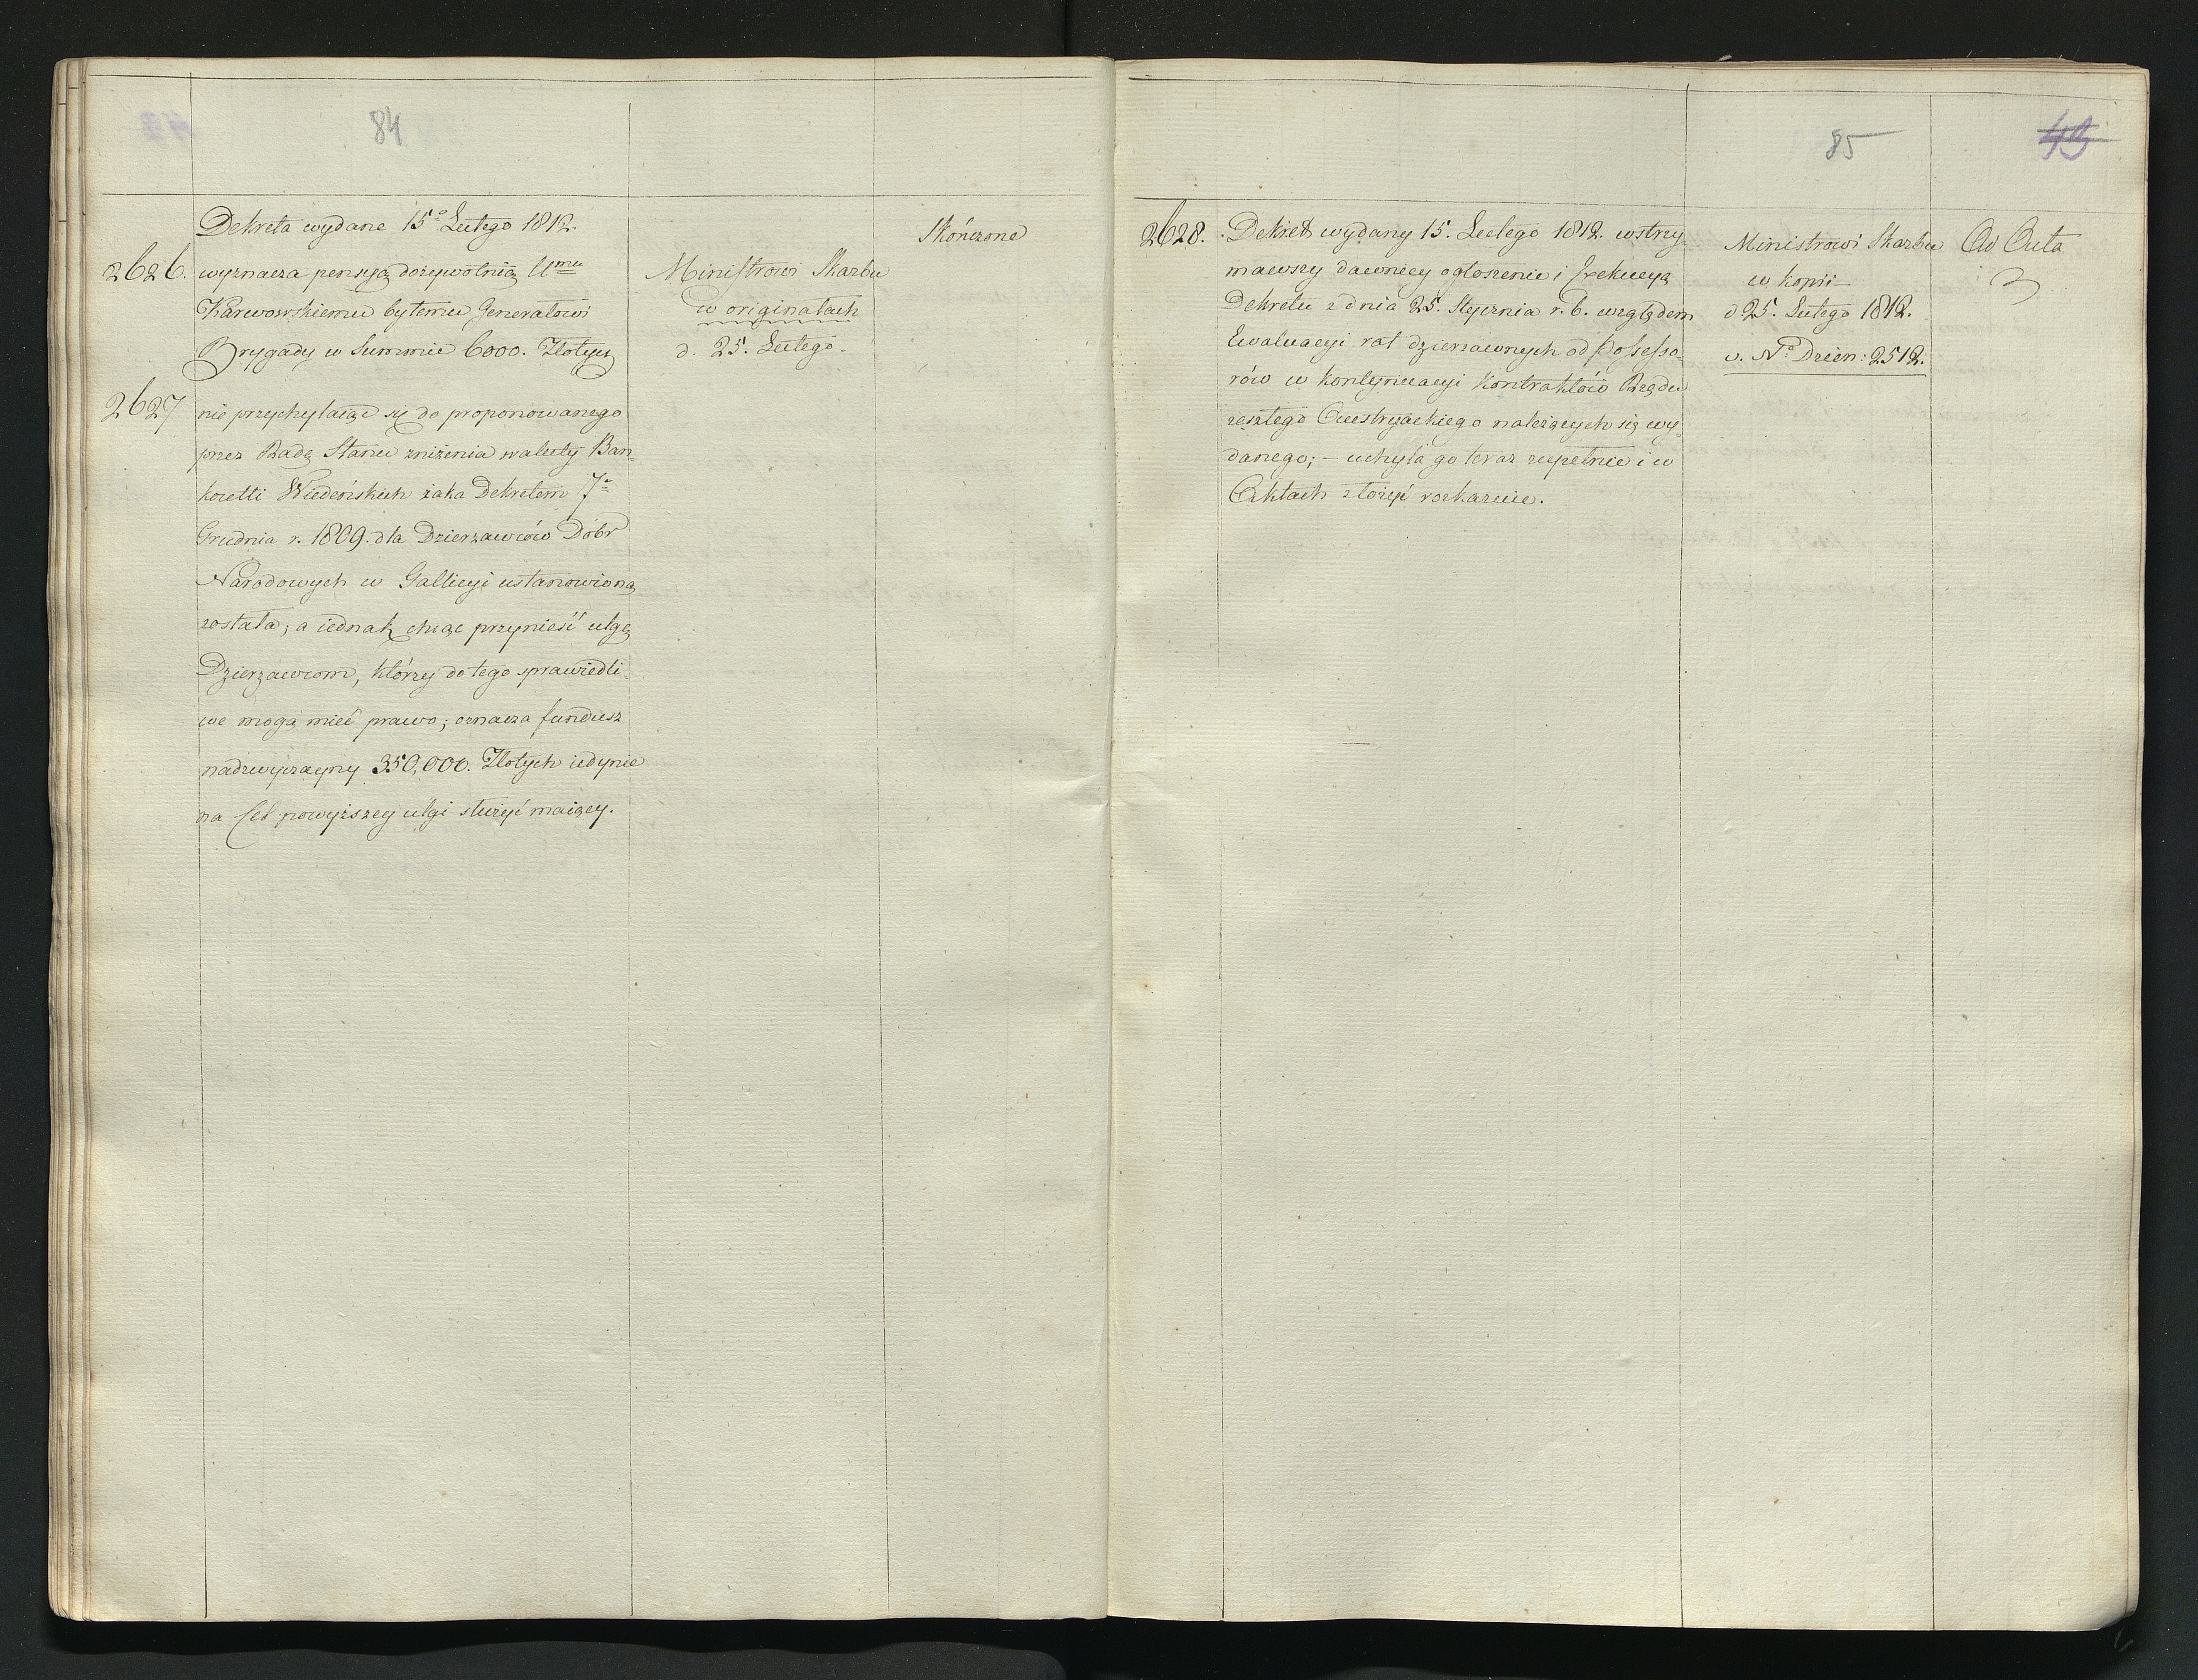 84
Dekreta wydane 15º Lutego 1812.
2626. wyznacza pensyą dożywotnią Ur<sup>mu</sup>
Karwowskiemu byłemu Generałowi
Brygady w Summie 6000. Złotych
Ministrowi Skarbu
w originałach
d. 25. Lutego.
Skończone
2627 nie przychylaiąc się do proponowanego
przez Radę Stanu zniżenia waluty Ban-
kocetli Wiedeńskich iaka Dekretem 7º
Grudnia r. 1809. dla Dzierzawców Dóbr
Narodowych w Gallicyi ustanowioną
została; a iednak chcąc przynieść ulgę
Dzierzawcom, którzy do tego sprawiedli-
we mogą mieć prawo; oznacza fundusz
nadzwyczayny 350,000. Złotych iedynie
na Cel powyższey ulgi służyć maiącey.
85
43
2628. Dekret wydany 15. Lutego 1812. wstrzy-
mawszy dawniey ogłoszenie i Exekucyą
Dekretu z dnia 25. Stycznia r. b. względem
Ewaluacyi rat dzierzawnych od Possesso-
rów w kontynuacyi Kontraktów Rządu
zeszłego Austryackiego należących się wy-
danego; – uchyla go teraz zupełnie i w
Aktach złożyć rozkazuie.
Ministrowi Skarbu
w kopii
d 25. Lutego 1812.
v. Nº Dzien: 2512.
Ad Acta